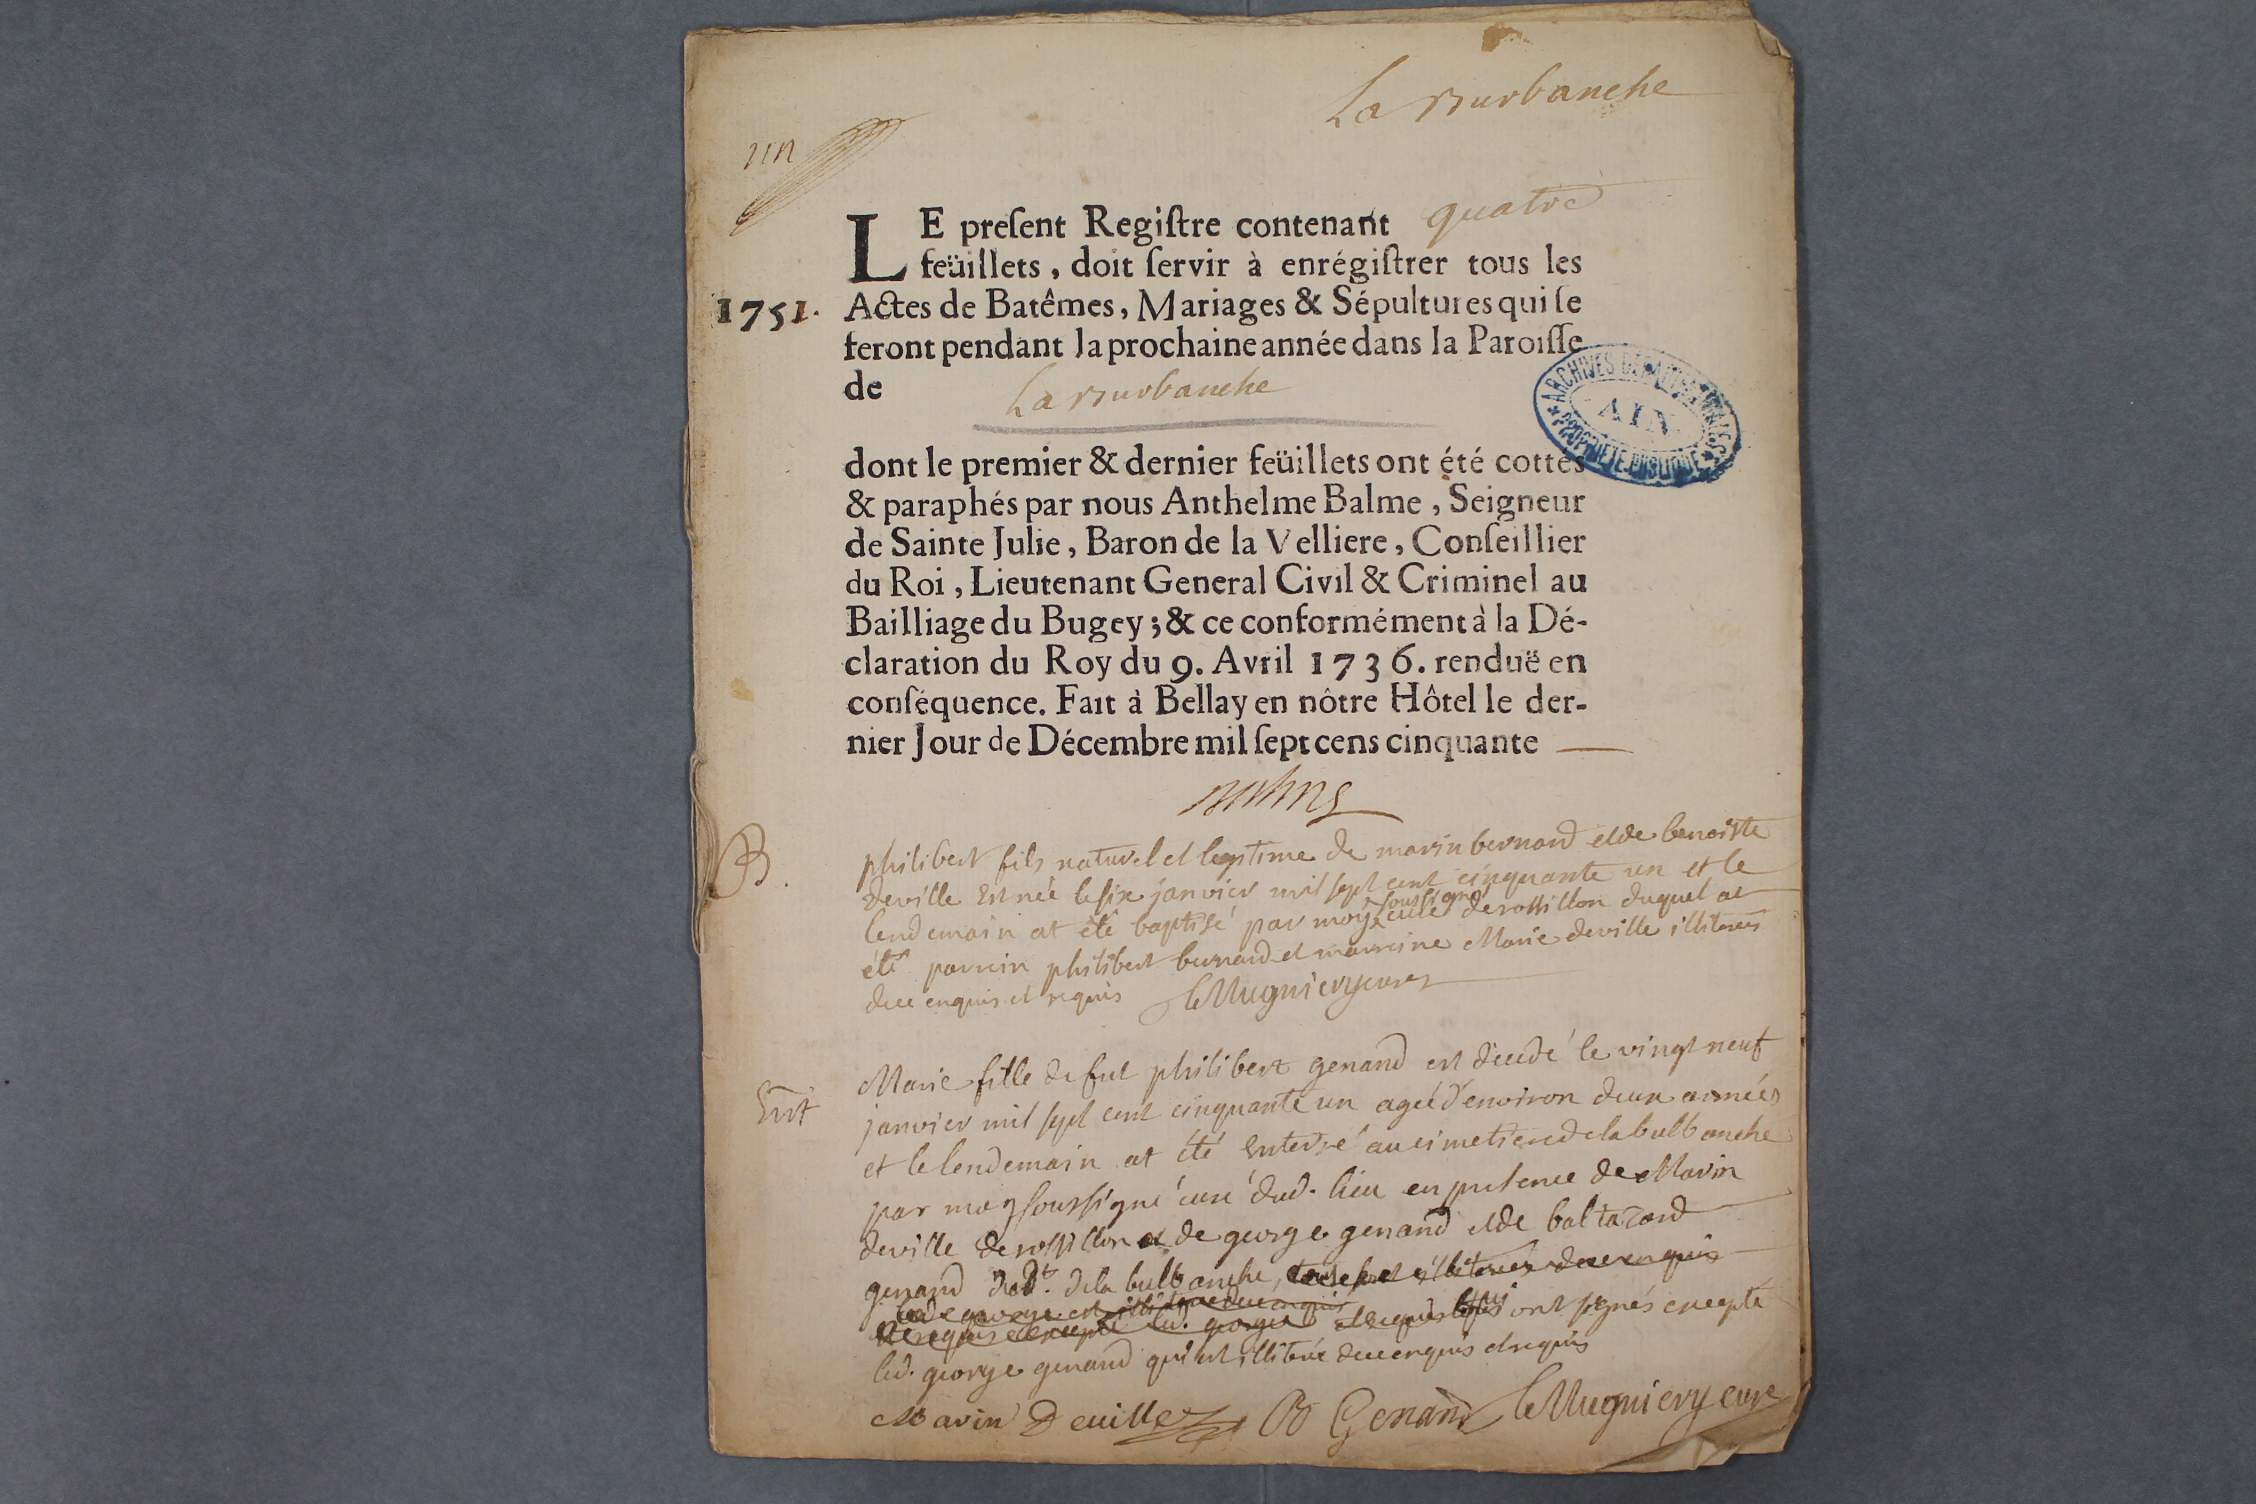 La Burbanche
un
LE preſent Regiſtre contenant quatre
feüillets, doit ſervir à enrégiſtrer tous les
1751. Actes de Batêmes, Mariages & Sépultures qui ſe
feront pendant la prochaine année dans la Paroiſſe
de La Burbanche
ARCHIVES DEPARTEMENTALES
AIN
PROPRIETE PUBLIQUE
dont le premier & dernier feüillets ont été cottés
& paraphés par nous Anthelme Balme, Seigneur
de Sainte Julie, Baron de la Velliere, Conſeillier
du Roi, Lieutenant General Civil & Criminel au
Bailliage du Bugey; & ce conformément à la Dé-
claration du Roy du 9. Avril 1736. renduë en
conſéquence. Fait à Bellay en nôtre Hôtel le der-
nier Jour de Décembre mil ſept cens cinquante
Balme
B. philibert fils naturel et legitime de marin bernard et de benoiste
deville Est née le six janvier mil sept cent cinquante un et le
lendemain at été baptisé par moy soussigné curé de rossillon duquel at
été parrein philibert bernard et marreine Marie deville illiterés
deue enquis et requis leMugniery curé
Ent Marie fille de fut philibert genand est décedé le vingt neuf
janvier mil sept cent cinquante un ageé d'environ deux années
et le lendemain at été Enterré au cimetiere de la bulbanche
par moy soussigné curé dud. lieu en presence de Marin
deville de rossillon et de george genand et de baltazard
genand dud. de la bulbanche, tous illiterés deue enquis
led. george et requis qui ont signés excepté
led. george genand qui est illiteré deue enquis et requis
Marin Deuille B Genand leMugniery curé